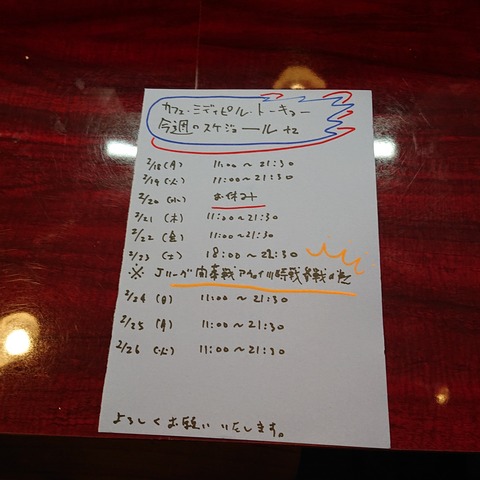 カフェ・ミディピル・トーキョー
今週のスケジュール
2/18(月) 11:00～21:30
2/19(火) 11:00～21:30
2/20(水) お休み
2/21(木) 11:00～21:30
2/22(金) 11:00～21:30
2/23(土) 18:00～21:30
※ Jリーグ開幕戦アウェイ川崎戦参戦の為
2/24(日) 11:00～21:30
2/25(月) 11:00～21:30
2/26(火) 11:00～21:30
よろしくお願いいたします。